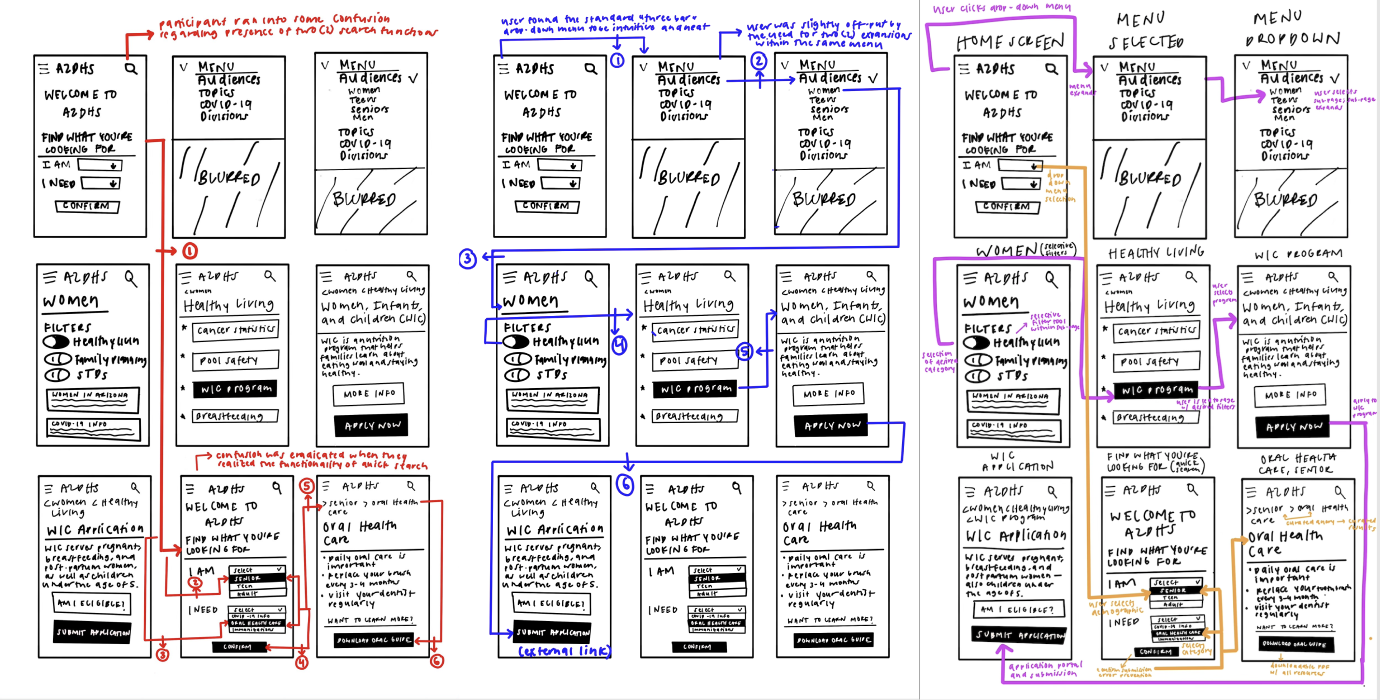 participant ran into some confusion
regarding presence of two(2) search functions
A2DHS
WELCOME TO
A2DHS
FIND WHAT YOU'RE
LOOKING FOR
I AM
I NEED
CONFIRM
MENU
Audiences
Topics
COVID-19
Divisions
BLURRED
MENU
Audiences
Women
Teens
Seniors
Men
Topics
COVID-19
Divisions
BLURRED
1
A2DHS
Women
FILTERS
Family Planning
STDs
WOMEN IN ARIZONA
COVID-19 INFO
A2DHS
<women
Healthy Living
Cancer statistics
Pool Safety
WIC Program
Breastfeeding
A2DHS
<women <Healthy Living
Women, Infants,
and Children (WIC)
WIC is a nutrition
program that helps
families learn about
eating well and staying
healthy.
MORE INFO
APPLY NOW
confusion was eradicated when they
realized the functionality of quick search
A2DHS
<Women <Healthy
Living
WIC Application
WIC serves pregnant,
breastfeeding, and
post-partum women,
as well as children
under the age of 5.
AM I ELIGIBLE?
SUBMIT APPLICATION
3
WELCOME TO
A2DHS
FIND WHAT YOU'RE
LOOKING FOR
I AM
Select
SENIOR
Teen
Adult
2
I NEED
Select
COVID-19 Info
ORAL HEALTH CARE
Immunizations
CONFIRM
4
5
A2DHS
>senior > oral Health
care
Oral Health
Care
• Daily oral care is
important
• Replace your brush
every 3-4 months
• Visit your dentist
regularly
WANT TO LEARN MORE?
DOWNLOAD ORAL GUIDE
6
user found the standard three bar
drop-down menu to be intuitive and neat
1
user was slightly off-put by
the need for two(2) expansions
within the same menu
2
A2DHS
WELCOME TO
A2DHS
FIND WHAT YOU'RE
LOOKING FOR
I AM
I NEED
CONFIRM
MENU
Audiences
Topics
COVID-19
Divisions
BLURRED
MENU
Audiences
Women
Teens
Seniors
Men
Topics
COVID-19
Divisions
BLURRED
3
A2DHS
Women
FILTERS
Family Planning
STDs
WOMEN IN ARIZONA
COVID-19 INFO
4
A2DHS
<women
Healthy Living
Cancer statistics
Pool Safety
WIC Program
Breastfeeding
5
A2DHS
<women <Healthy Living
Women, Infants,
and Children (WIC)
WIC is a nutrition
program that helps
families learn about
eating well and staying
healthy.
MORE INFO
APPLY NOW
6
A2DHS
<Women <Healthy
Living
WIC Application
WIC serves pregnant,
breastfeeding, and
post-partum women,
as well as children
under the age of 5.
AM I ELIGIBLE?
SUBMIT APPLICATION
(external link)
A2DHS
WELCOME TO
A2DHS
FIND WHAT YOU'RE
LOOKING FOR
I AM
Select
SENIOR
Teen
Adult
I NEED
Select
COVID-19 Info
ORAL HEALTH CARE
Immunizations
CONFIRM
A2DHS
>senior > oral Health
care
Oral Health
Care
• Daily oral care is
important
• Replace your brush
every 3-4 months
• Visit your dentist
regularly
WANT TO LEARN MORE?
DOWNLOAD ORAL GUIDE
user clicks drop-down menu
HOME SCREEN
A2DHS
WELCOME TO
A2DHS
FIND WHAT YOU'RE
LOOKING FOR
I AM
I NEED
CONFIRM
drop
down
menu
selection
MENU
SELECTED
menu
expands
MENU
Audiences
Topics
COVID-19
Divisions
BLURRED
MENU
DROPDOWN
MENU
Audiences
Women
Teens
Seniors
Men
Topics
COVID-19
Divisions
BLURRED
user selects
sub-page, sub-page
expands
WOMEN (selective filters)
A2DHS
Women
FILTERS
selective
filter tool
within sub-page
Family Planning
STDs
WOMEN IN ARIZONA
COVID-19 INFO
selection
of desired
category
HEALTHY LIVING
A2DHS
<women
Healthy Living
Cancer statistics
Pool Safety
WIC Program
Breastfeeding
user
selects
program
WIC PROGRAM
A2DHS
<women <Healthy Living
Women, Infants,
and Children (WIC)
WIC is a nutrition
program that helps
families learn about
eating well and staying
healthy.
MORE INFO
APPLY NOW
apply to
WIC
program
WIC
APPLICATION
A2DHS
<Women <Healthy Living
<WIC Program
WIC Application
WIC serves pregnant,
breastfeeding, and
post partum women—
also children under
the age of 5.
AM I ELIGIBLE?
SUBMIT APPLICATION
application portal
and submission
FIND WHAT YOU'RE
LOOKING FOR (quick search)
A2DHS
WELCOME TO
A2DHS
FIND WHAT YOU'RE
LOOKING FOR
I AM
Select
SENIOR
Teen
Adult
user selects
demographic
I NEED
Select
COVID-19 Info
ORAL HEALTH CARE
Immunizations
select
category
CONFIRM
confirm submission
error prevention
ORAL HEALTH
CARE, SENIOR
A2DHS
>senior > oral Health
care
Oral Health
Care
• Daily oral care is
important
every 3-4 month
• Visit your dentist
regularly
WANT TO LEARN MORE?
DOWNLOAD ORAL GUIDE
downloadable PDF
w/ all resources